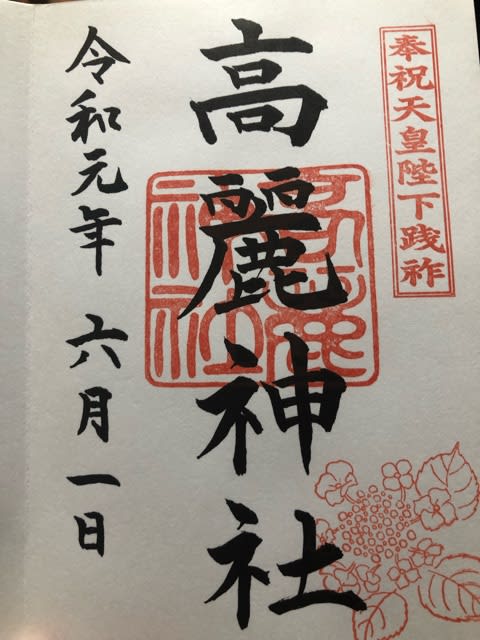 奉祝天皇陛下践祚
高麗神社
令和元年 六月一日
高麗神社